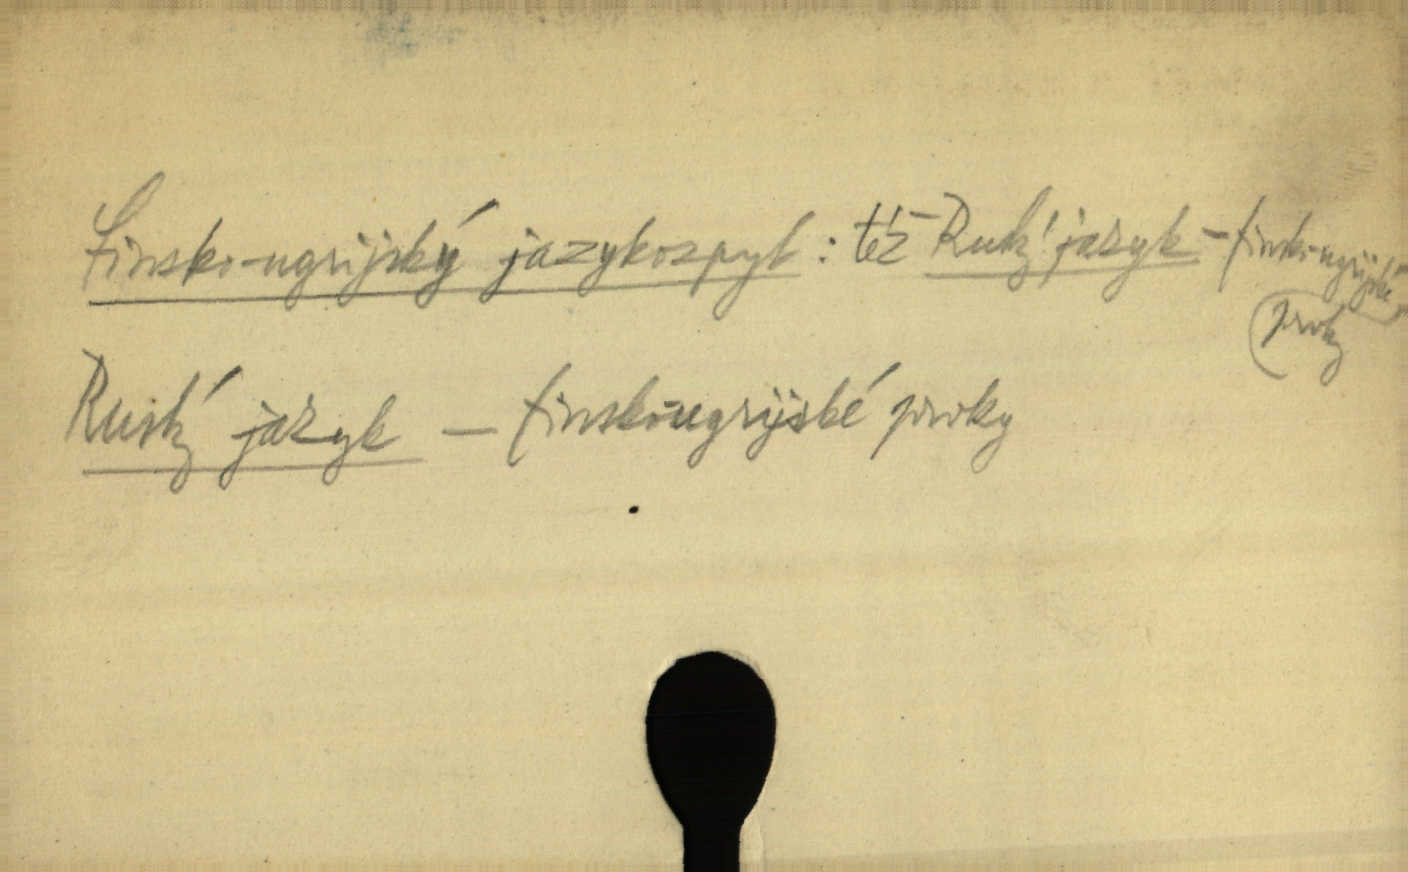 Finsko-ugrijský jazykozpyt : též Ruský jazyk - finsko-ugrijské
prvky
Ruský jazyk — finskougrijské prvky